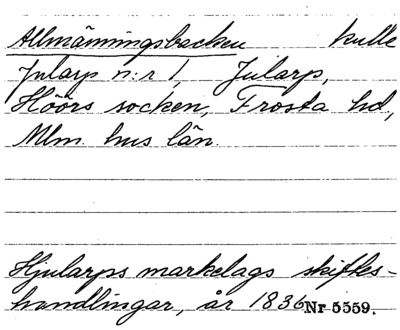 Allmänningsbacken kulle
Jularp n:r 1, Jularp,
Höörs socken, Frosta hd,
Mlm. hus län.
Hjularps markelags skiftes-
handlingar, år 1836.
Nr 5559.